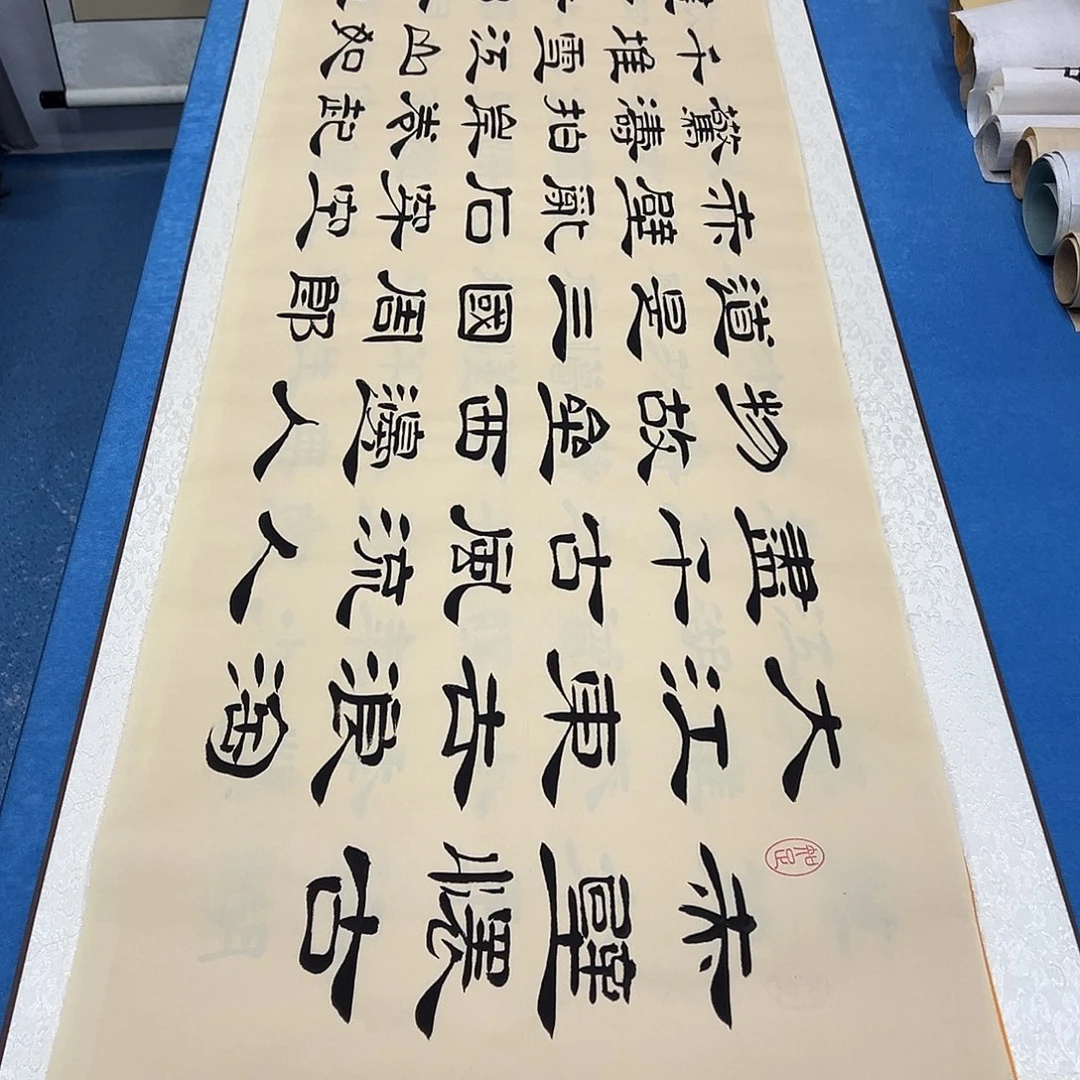 赤壁懷古
大江東去浪淘
盡千古風流人
物故壘西邊人
道是三國周郎
赤壁亂石穿空
驚濤拍岸卷起
千堆雪江山如